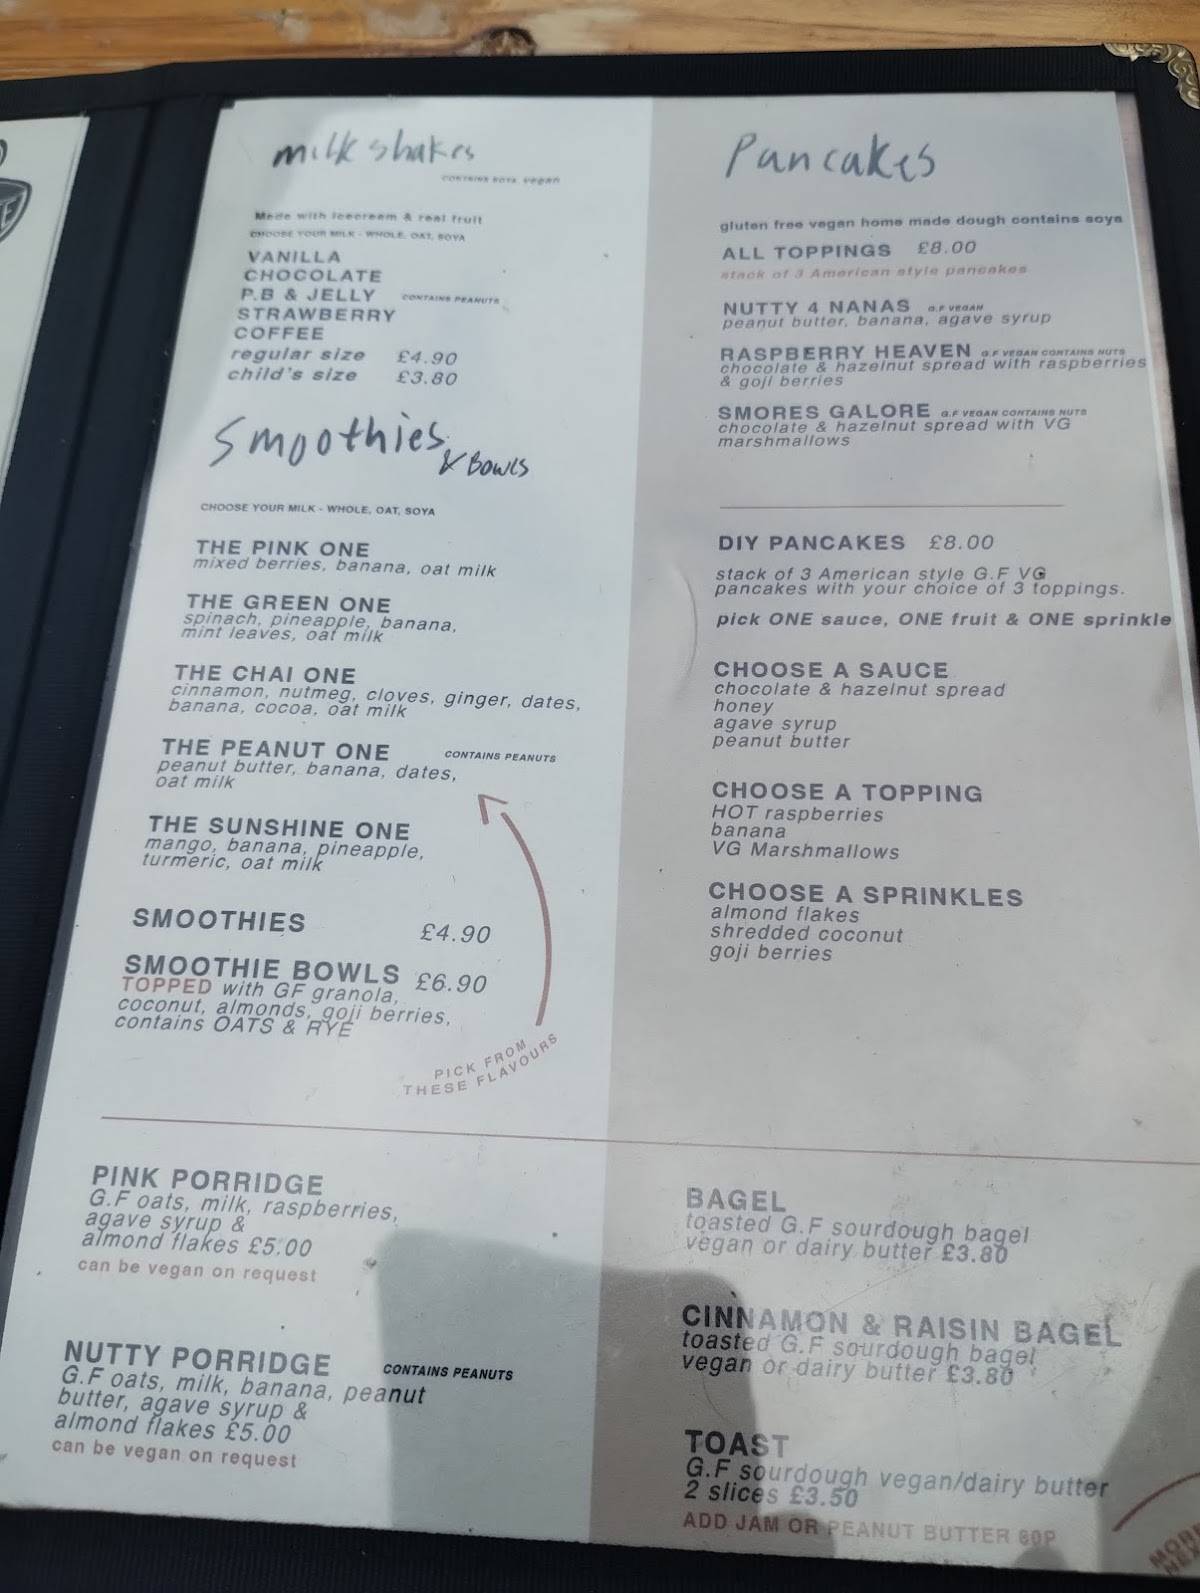 milkshakes
CONTAINS SOYA, vegan
Made with icecream & real fruit
CHOOSE YOUR MILK - WHOLE, OAT, SOYA
VANILLA
CHOCOLATE
P.B & JELLY CONTAINS PEANUTS
STRAWBERRY
COFFEE
regular size £4.90
child's size £3.80
Smoothies
& Bowls
CHOOSE YOUR MILK - WHOLE, OAT, SOYA
THE PINK ONE
mixed berries, banana, oat milk
THE GREEN ONE
spinach, pineapple, banana,
mint leaves, oat milk
THE CHAI ONE
cinnamon, nutmeg, cloves, ginger, dates,
banana, cocoa, oat milk
THE PEANUT ONE CONTAINS PEANUTS
peanut butter, banana, dates,
oat milk
THE SUNSHINE ONE
mango, banana, pineapple,
turmeric, oat milk
SMOOTHIES £4.90
SMOOTHIE BOWLS £6.90
TOPPED with GF granola,
coconut, almonds, goji berries,
contains OATS & RYE
PICK FROM
THESE FLAVOURS
PINK PORRIDGE
G.F oats, milk, raspberries,
agave syrup &
almond flakes £5.00
can be vegan on request
NUTTY PORRIDGE CONTAINS PEANUTS
G.F oats, milk, banana, peanut
butter, agave syrup &
almond flakes £5.00
can be vegan on request
Pancakes
gluten free vegan home made dough contains soya
ALL TOPPINGS £8.00
stack of 3 American style pancakes
NUTTY 4 NANAS G.F VEGAN
peanut butter, banana, agave syrup
RASPBERRY HEAVEN G.F VEGAN CONTAINS NUTS
chocolate & hazelnut spread with raspberries
& goji berries
SMORES GALORE G.F VEGAN CONTAINS NUTS
chocolate & hazelnut spread with VG
marshmallows
DIY PANCAKES £8.00
stack of 3 American style G.F VG
pancakes with your choice of 3 toppings.
pick ONE sauce, ONE fruit & ONE sprinkle
CHOOSE A SAUCE
chocolate & hazelnut spread
honey
agave syrup
peanut butter
CHOOSE A TOPPING
HOT raspberries
banana
VG Marshmallows
CHOOSE A SPRINKLES
almond flakes
shredded coconut
goji berries
BAGEL
toasted G.F sourdough bagel
vegan or dairy butter £3.80
CINNAMON & RAISIN BAGEL
toasted G.F sourdough bagel
vegan or dairy butter £3.80
TOAST
G.F sourdough vegan/dairy butter
2 slices £3.50
ADD JAM OR PEANUT BUTTER 60P